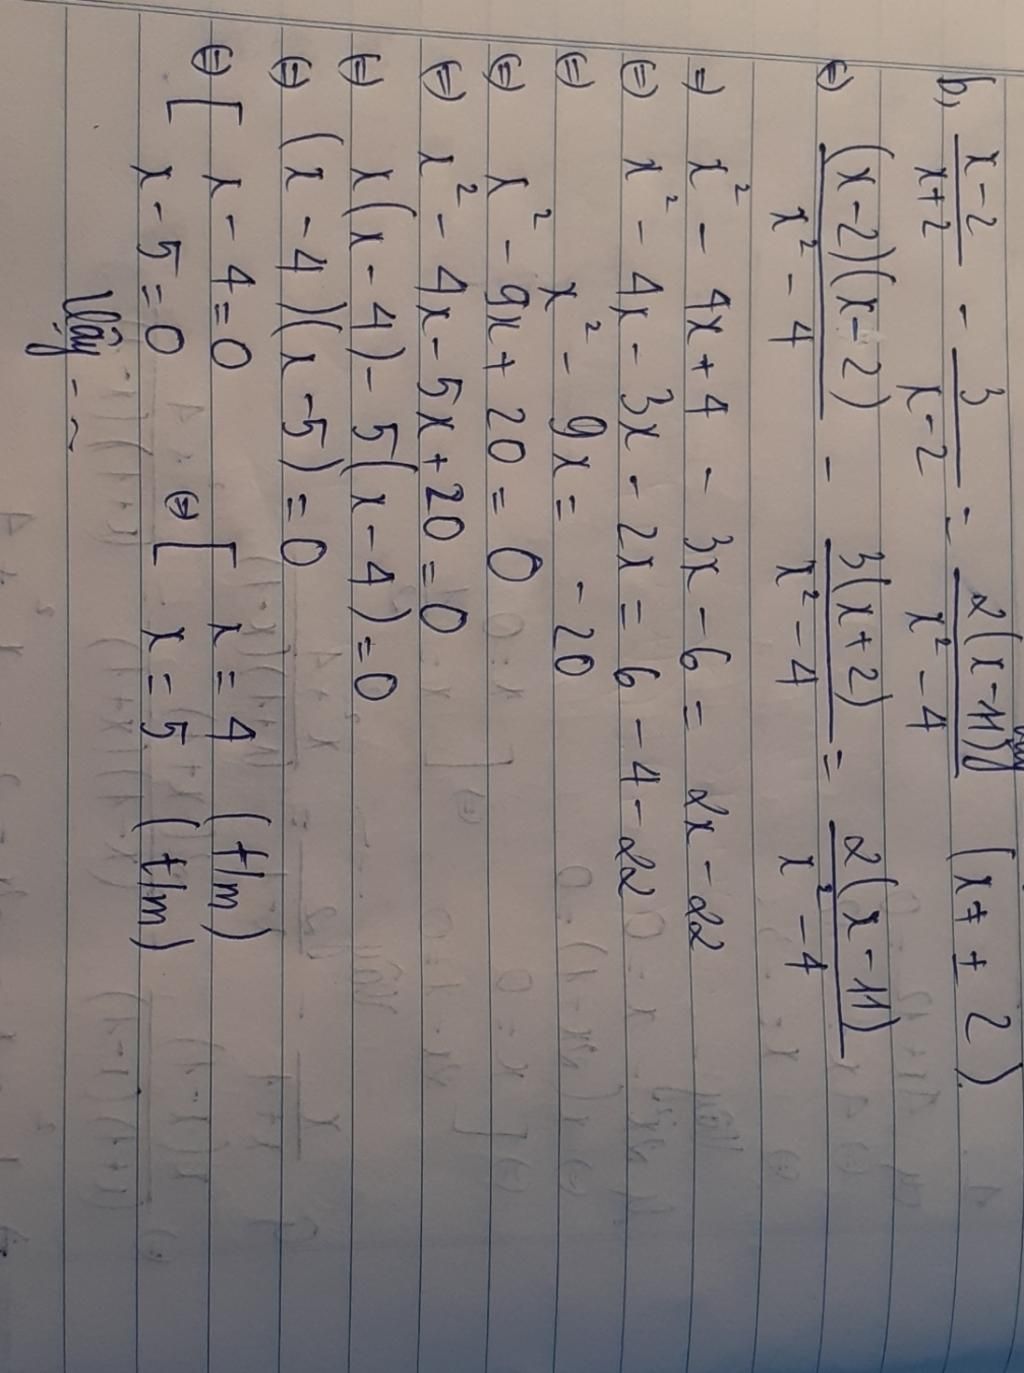 b, \frac{x-2}{x+2} - \frac{3}{x-2} = \frac{2(x-11)}{x^2-4} (x ≠ ± 2)
⇔ \frac{(x-2)(x-2)}{x^2-4} - \frac{3(x+2)}{x^2-4} = \frac{2(x-11)}{x^2-4}
⇒ x² - 4x + 4 - 3x - 6 = 2x - 22
⇔ x² - 4x - 3x - 2x = 6 - 4 - 22
⇔ x² - 9x = - 20
⇔ x² - 9x + 20 = 0
⇔ x² - 4x - 5x + 20 = 0
⇔ x(x - 4) - 5(x - 4) = 0
⇔ (x - 4)(x - 5) = 0
⇔ [ x - 4 = 0 ⇔ [ x = 4 (t/m)
x - 5 = 0 x = 5 (t/m)
Vậy - ~